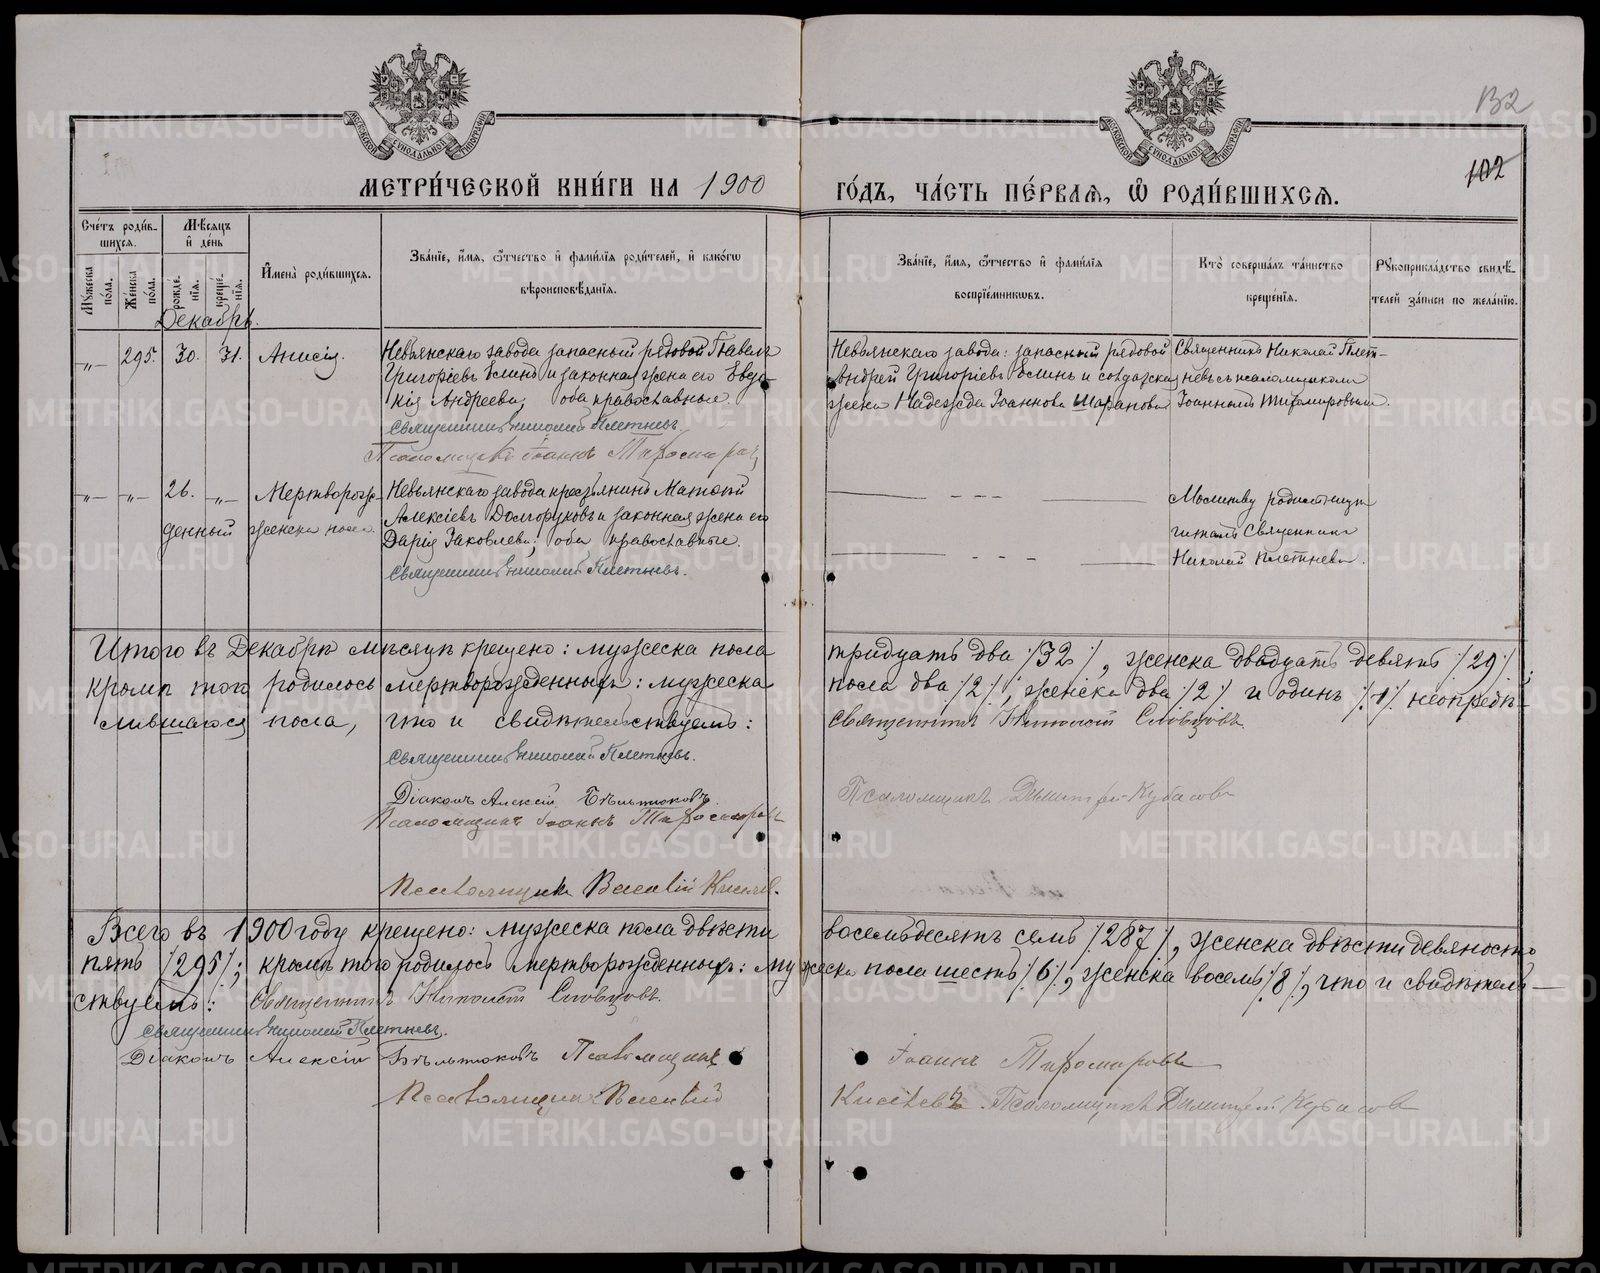 132
102
МЕТРИ́ЧЕСКОЙ КНИ́ГИ НА 1900 ГО́ДЪ, ЧА́СТЬ ПЕ́РВАѦ, Ѡ҆ РОДИ́ВШИХСѦ.
Сче́тъ роди́в-
шихсѧ.
Мѣ́сѧцъ
и҆ де́нь
Мꙋ́жеска
по́ла.
Же́нска
по́ла.
рожде́-
нїѧ.
креще́-
нїѧ.
И҆мена̀ роди́вшихсѧ.
Зва́нїе, и҆́мѧ, ѻ҆́тчество и҆ фами́лїѧ роди́телей, и҆ како́гѡ
вѣроисповѣ́данїѧ.
Зва́нїе, и҆́мѧ, ѻ҆́тчество и҆ фами́лїѧ
воспрїе́мникѡвъ.
Кто̀ соверша́лъ та́инство
креще́нїѧ.
Рꙋкоприкла́дство свидѣ́-
телей за́писи по жела́нїю.
Декабрь.
-„- 295. 30. 31. Анисія.
Невьянскаго завода запасный рядовой Павелъ
Григоріевъ Еслинъ и законная жена его Евдо-
кія Андреева, оба православные.
Священникъ Николай Плетневъ.
Псаломщикъ Іоаннъ Тифомировъ
Невьянскаго завода: запасный рядовой
Андрей Григоріевъ Еслинъ и солдатская
жена Надежда Іоаннова Шарапова
Священникъ Николай Плет-
невъ съ псаломщикомъ
Іоанномъ Тифомировымъ.
-„- -„- 26. -„- Мертворож-
денный женска пола.
Невьянскаго завода крестьянинъ Матвѣй
Алексіевъ Долгоруковъ и законная жена его
Дарія Іаковлева; оба православные.
Священникъ Николай Плетневъ.
Молитву родильницѣ
читалъ Священникъ
Николай Плетневъ.
Итого въ Декабрѣ мѣсяцѣ крещено: мужеска пола тридцать два /32/, женска двадцать девять /29/;
кромѣ того родилось мертворожденныхъ: мужеска пола два /2/, женска два /2/ и одинъ /1/ неопредѣ-
лившагося пола, что и свидѣтельствуемъ: Священникъ Николай Словцовъ.
Священникъ Николай Плетневъ.
Діаконъ Алексій Бѣльтюковъ.
Псаломщикъ Іоаннъ Тифомировъ
Псаломщикъ Димитрій Кубасовъ
Псаломщикъ Василій Киселев.
Всего въ 1900 году крещено: мужеска пола двѣсти восемьдесятъ семь /287/, женска двѣсти девяносто
пять /295/; кромѣ того родилось мертворожденныхъ: мужеска пола шесть /6/, женска восемь /8/, что и свидѣтель-
ствуемъ: Священникъ Николай Словцовъ.
Священникъ Николай Плетневъ.
Діаконъ Алексій Бѣльтюковъ Псаломщикъ Іоаннъ Тифомировъ
Псаломщикъ Василій Киселевъ. Псаломщикъ Димитрій Кубасовъ
METRIKI.GASO-URAL.RU